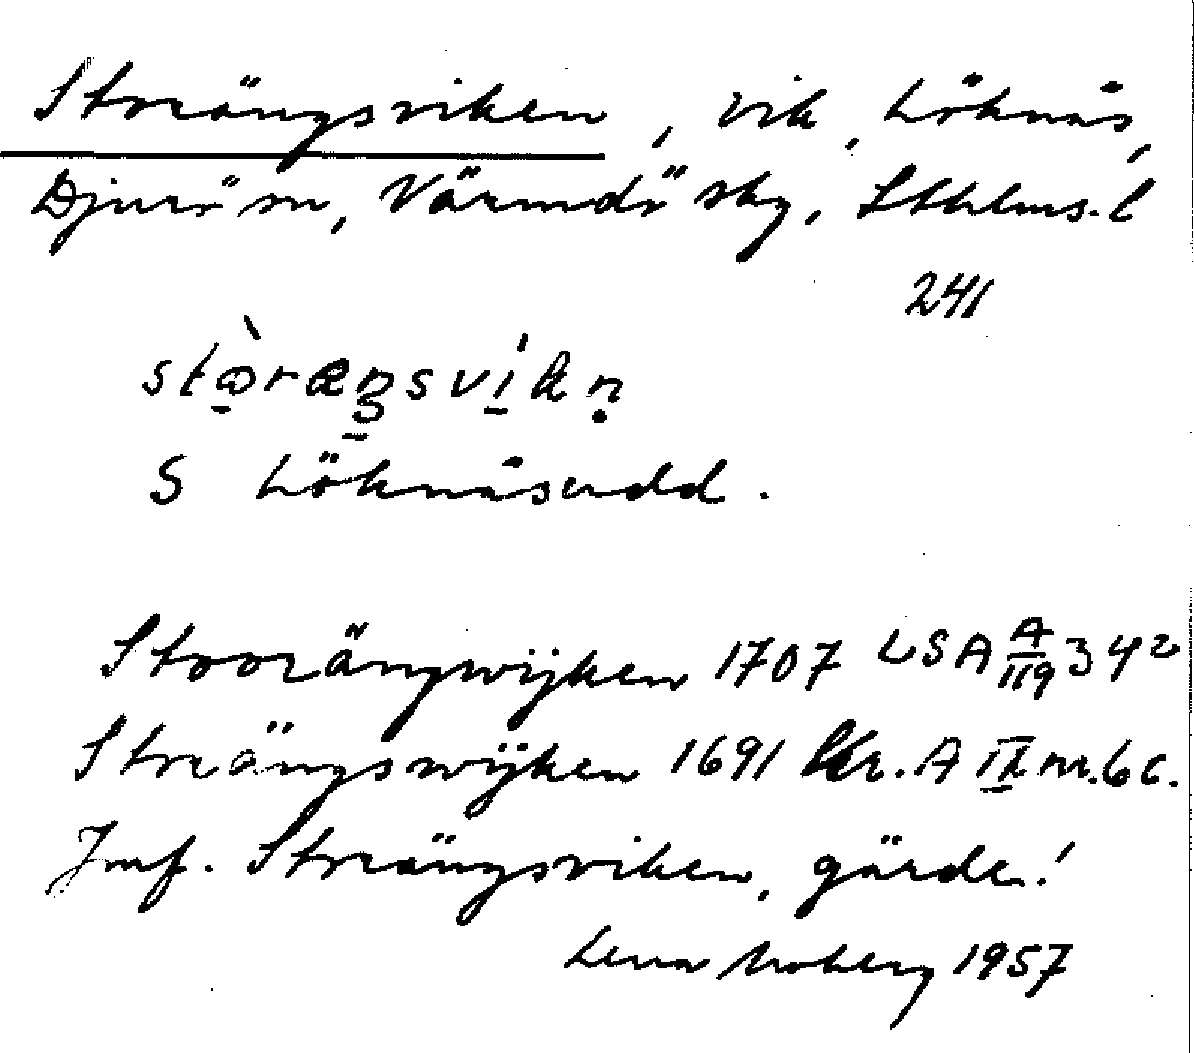 Storängsviken, vik, Löknäs,
Djurö sn, Värmdö sky, Sthlms. l
241
S Löknäsudd.
Stoorängwijken 1707 LSA A/119 34²
Storängswijken 1691 A IX nr. 6 c.
Jmf. Storängsviken, gärde!
Lena Moberg 1957